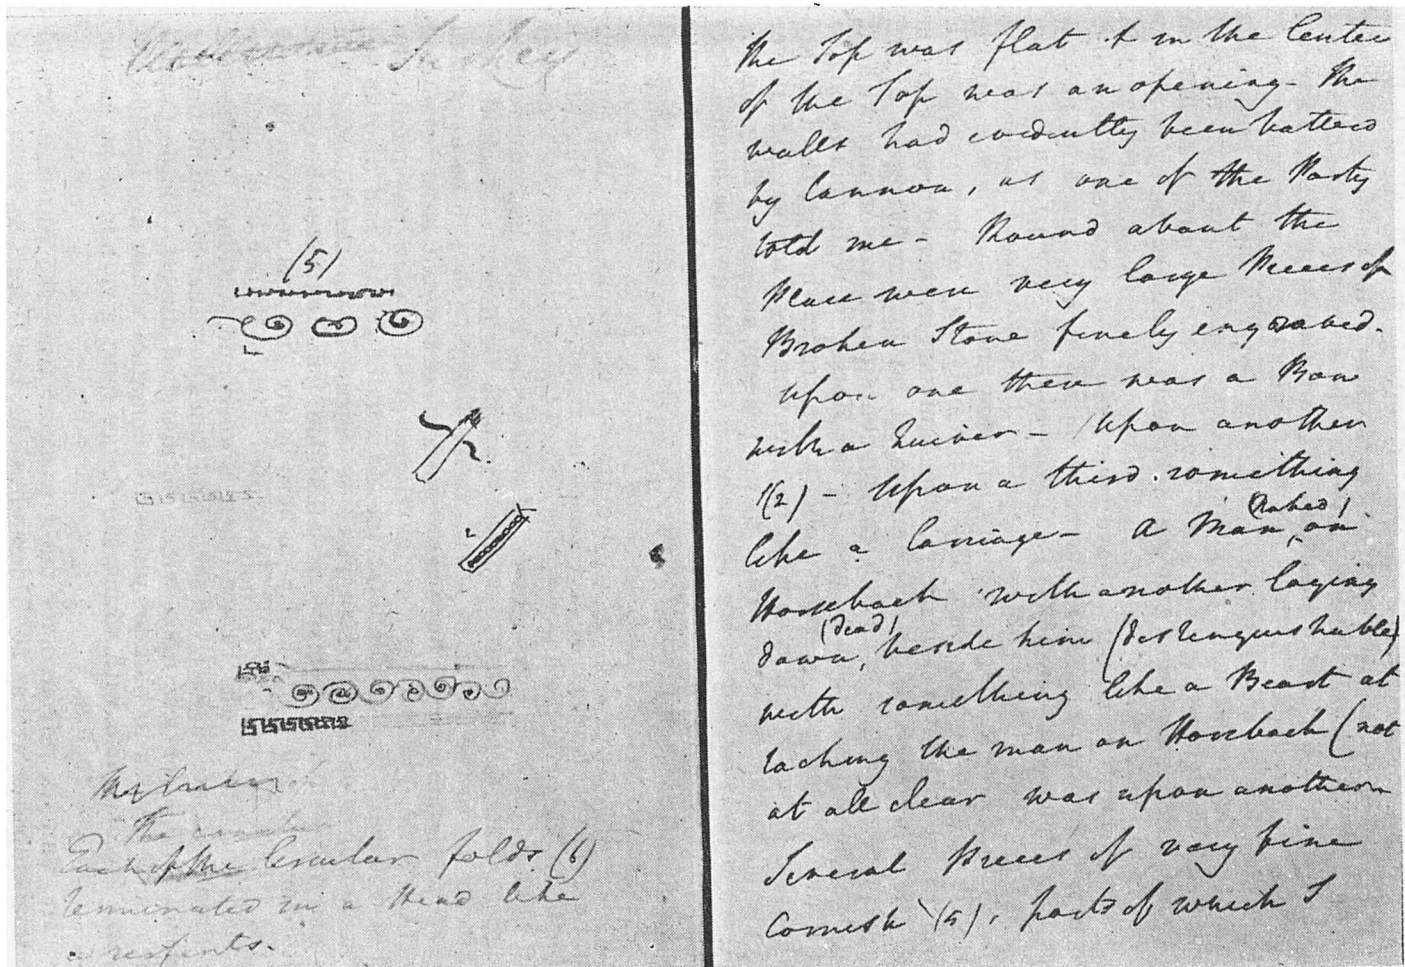 Turkey
(5)
Each of the Circular folds (6)
terminated in a Head like
a serpents.
the Top was flat & in the Centre
of the Top was an opening - The
walls had evidently been batterd
by Cannon, as one of the Party
told me - Round about the
Place were very large Pieces of
Broken Stone finely engraved.
upon one there was a Bow
with a Quiver - Upon another
(2) - Upon a third something
like a Carriage - A Man (naked) on
Horseback with another laying
down (dead) beside him (distinguishable)
with something like a Beast at
taching the man on Horseback (not
at all clear was upon another
Several Pieces of very fine
Cornish (5), parts of which I